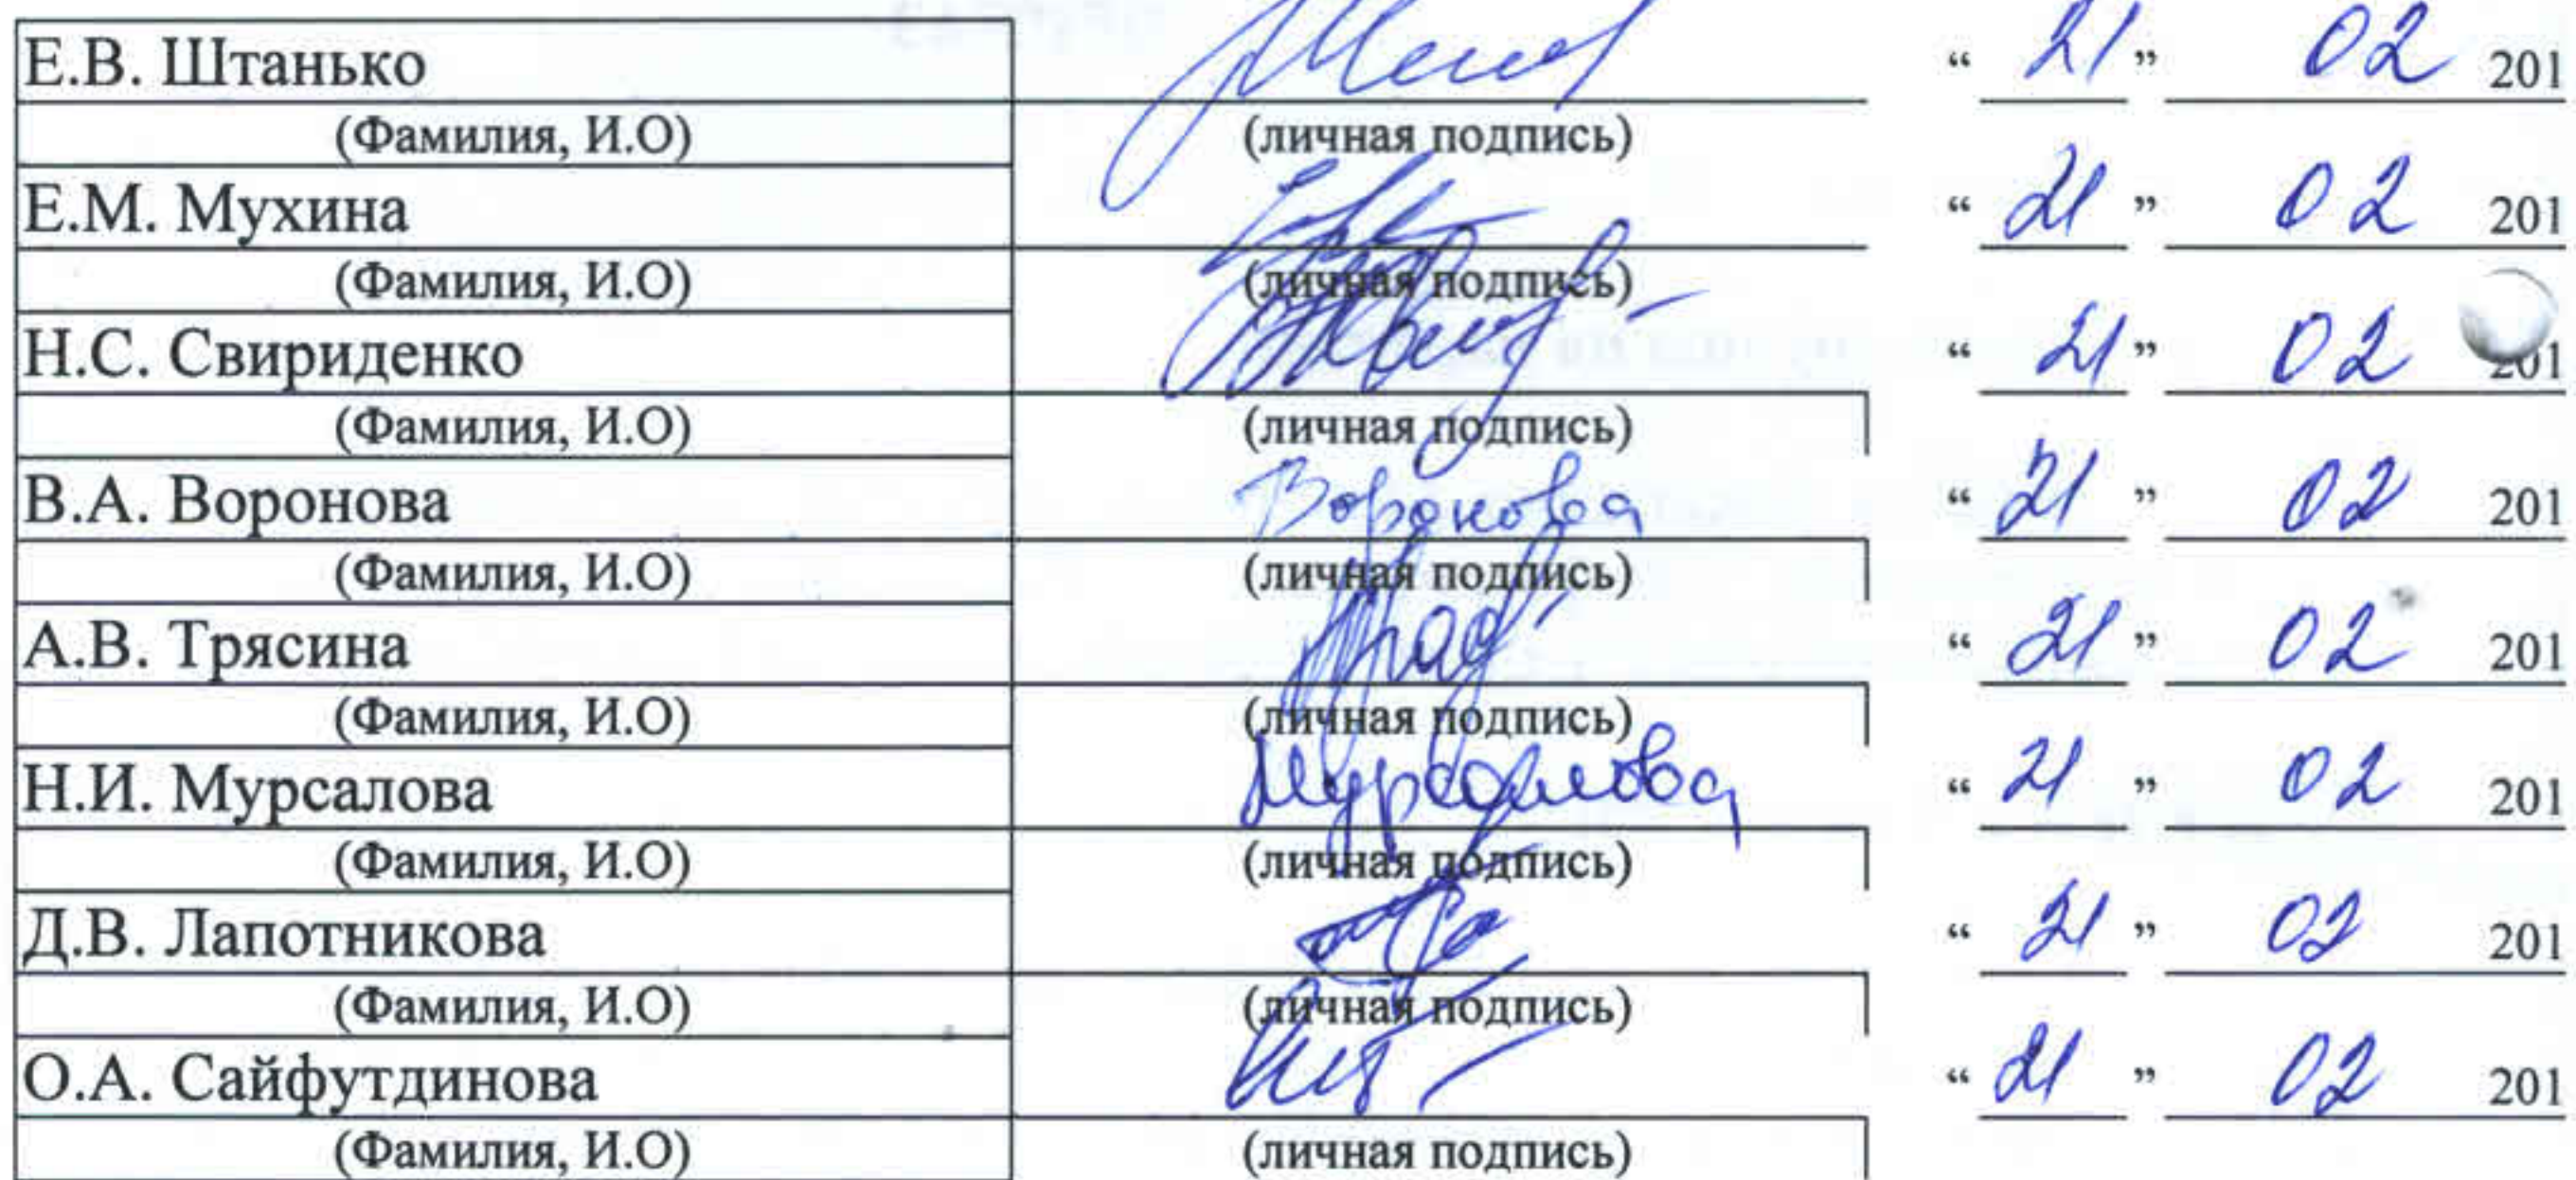 Е.В. Штанько “ 21 ” 02 201
(Фамилия, И.О) (личная подпись)
Е.М. Мухина “ 21 ” 02 201
(Фамилия, И.О) (личная подпись)
Н.С. Свириденко “ 21 ” 02 201
(Фамилия, И.О) (личная подпись)
В.А. Воронова Воронова “ 21 ” 02 201
(Фамилия, И.О) (личная подпись)
А.В. Трясина “ 21 ” 02 201
(Фамилия, И.О) (личная подпись)
Н.И. Мурсалова Мурсалова “ 21 ” 02 201
(Фамилия, И.О) (личная подпись)
Д.В. Лапотникова “ 21 ” 02 201
(Фамилия, И.О) (личная подпись)
О.А. Сайфутдинова “ 21 ” 02 201
(Фамилия, И.О) (личная подпись)